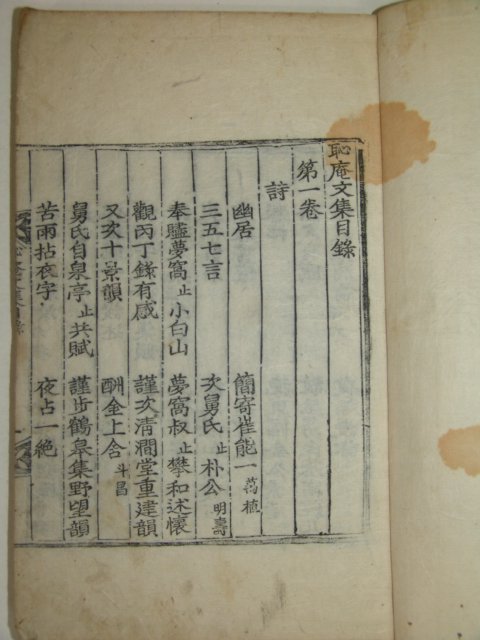 恥庵文集目錄
第一卷
詩
幽居 簡寄崔能一 萬植
三五七言 次舅氏止朴公 明壽
奉贐夢窩止小白山 夢窩叔止攀和述懷
觀丙丁錄有感 謹次清澗堂重建韻
又次十景韻 酬金上舍 斗昌
舅氏自泉亭止共賦 謹步鶴皋集野望韻
苦雨拈衣字 夜占一絶